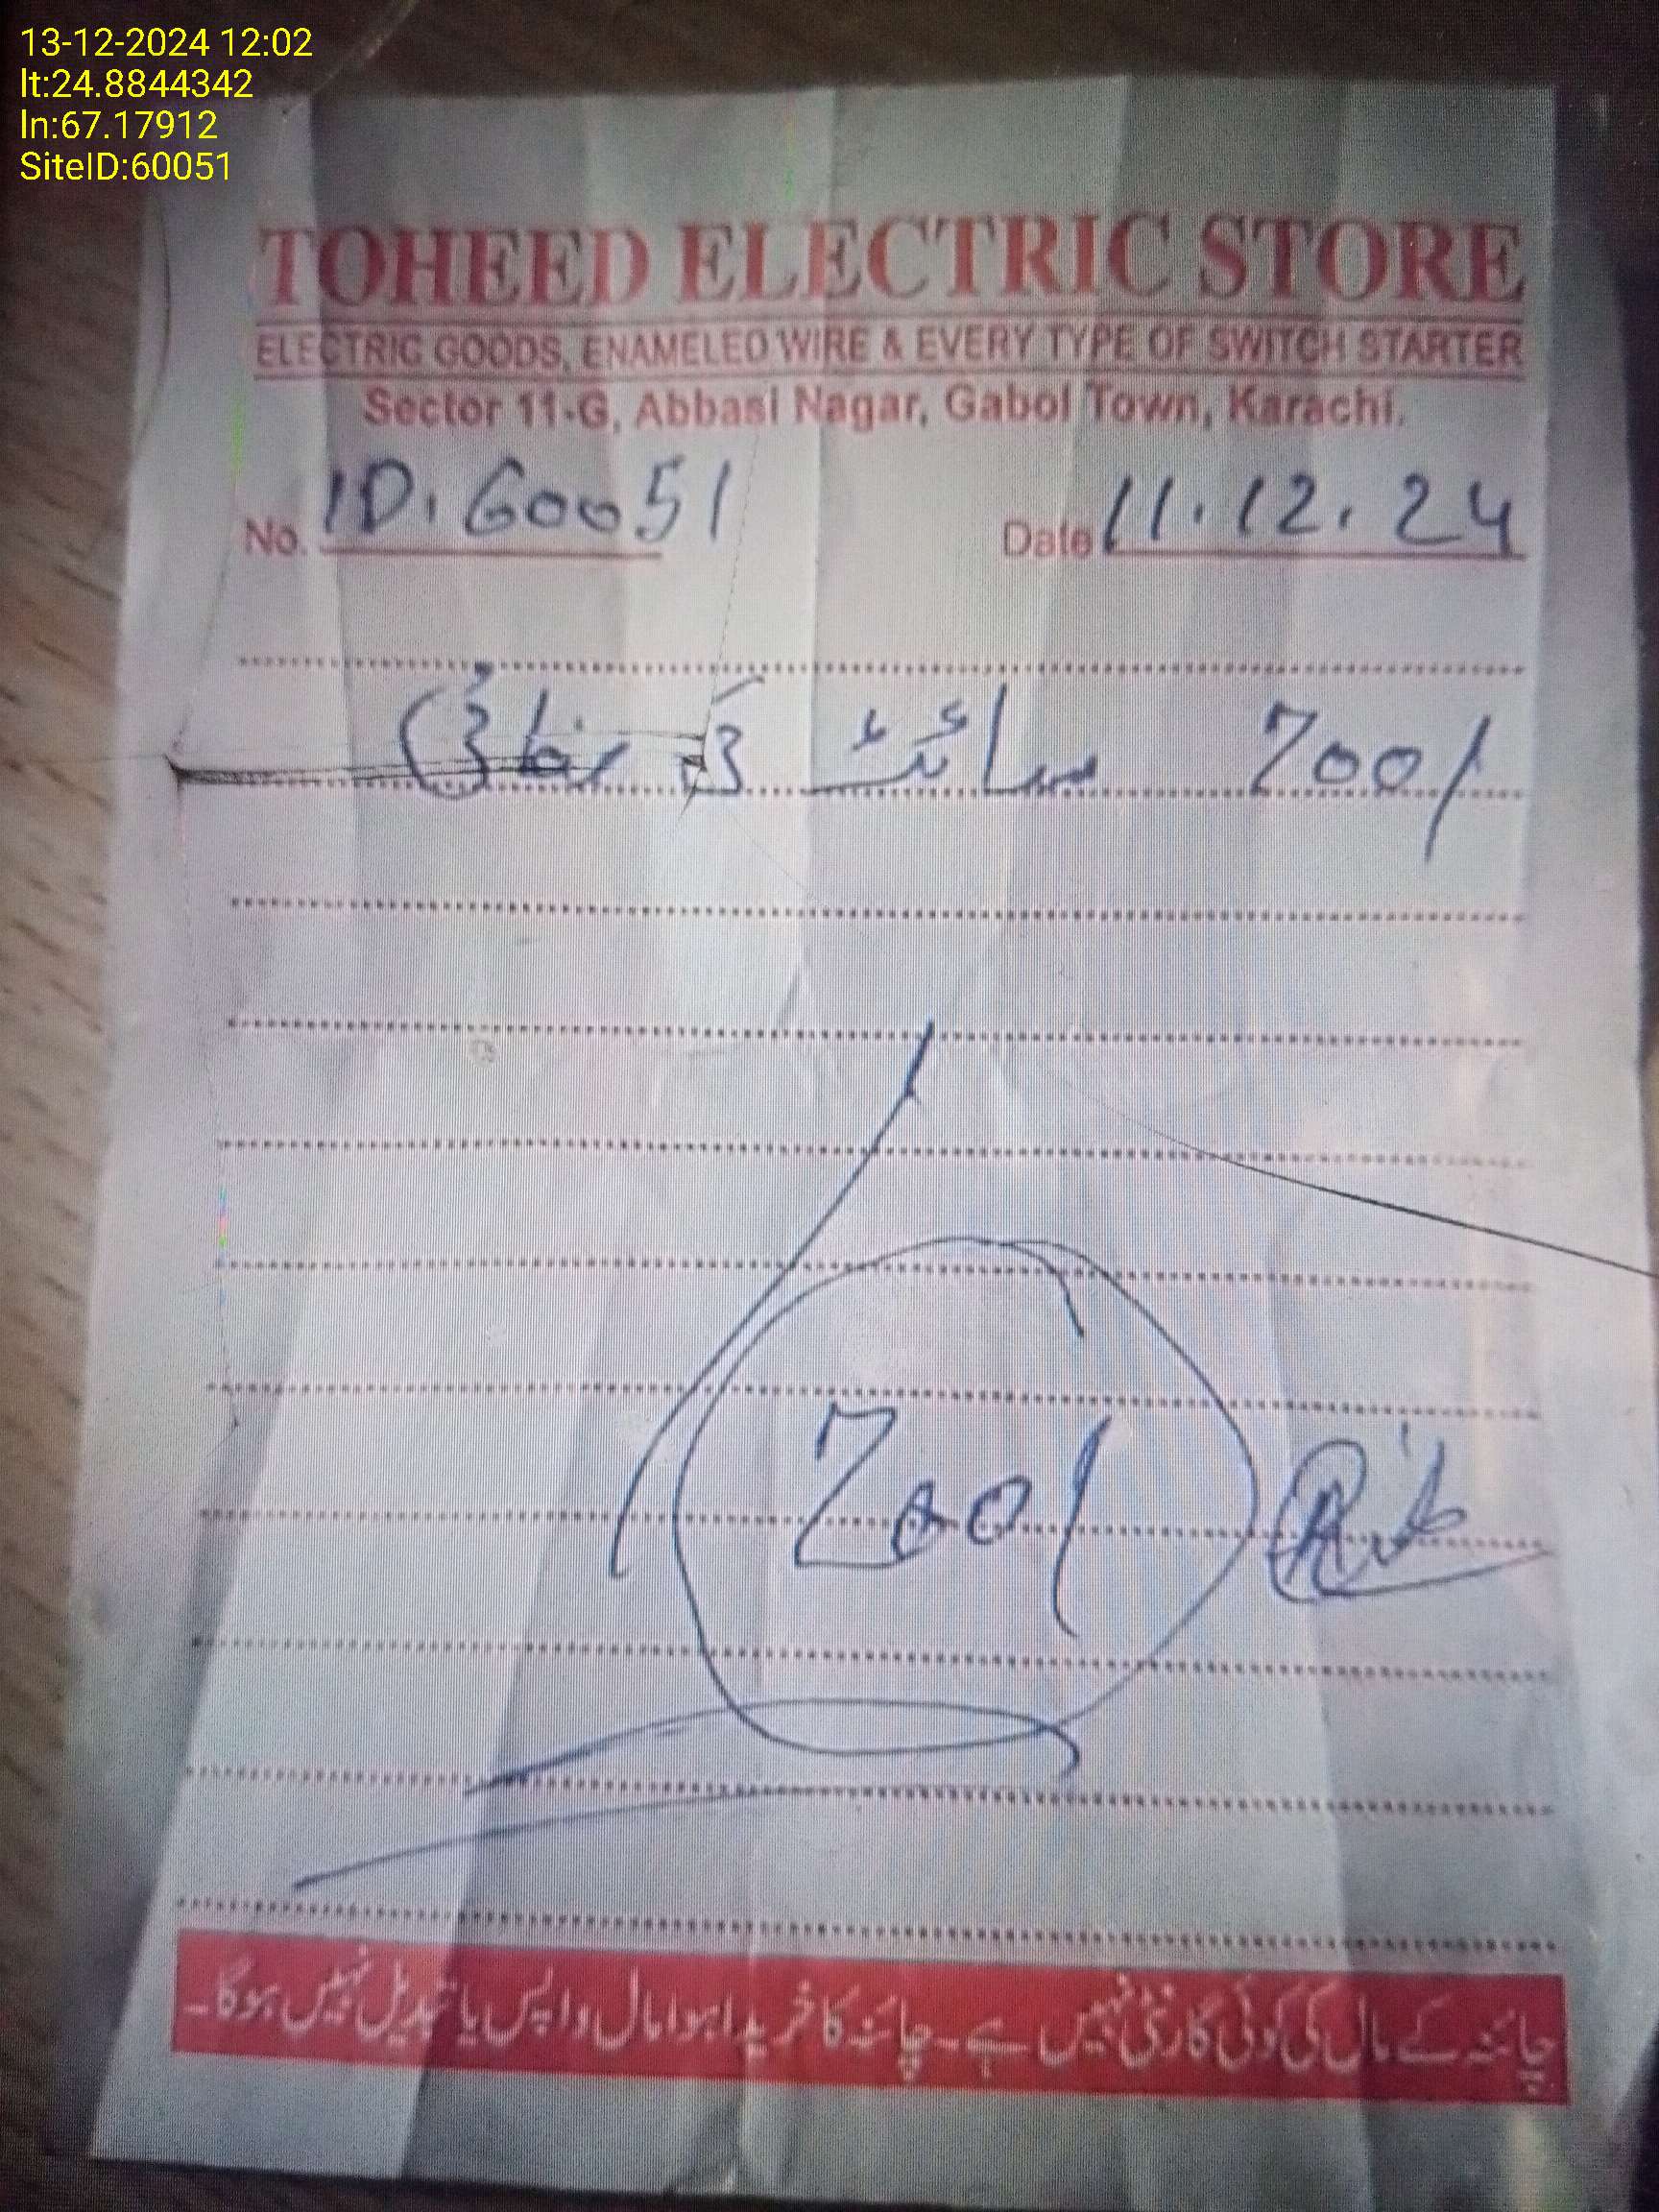 13-12-2024 12:02
lt:24.8844342
ln:67.17912
SiteID:60051
TOHEED ELECTRIC STORE
ELECTRIC GOODS, ENAMELED WIRE & EVERY TYPE OF SWITCH STARTER
Sector 11-G, Abbasi Nagar, Gabol Town, Karachi.
No. ID. 60051 Date 11.12.24
700/ سائٹ کی صفائی
700/
چائنہ کے مال کی کوئی گارنٹی نہیں ہے۔ چائنہ کا خریدا ہوا مال واپس یا تبدیل نہیں ہوگا۔